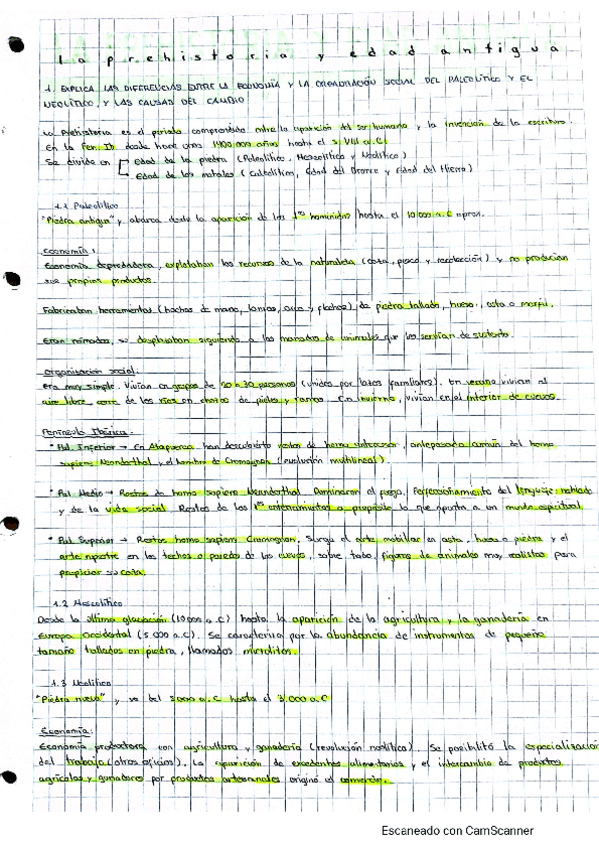 La prehistoria y edad antigua
1. EXPLICA LAS DIFERENCIAS ENTRE LA ECONOMÍA Y LA ORGANIZACIÓN SOCIAL DEL PALEOLÍTICO Y EL
NEOLÍTICO, Y LAS CAUSAS DEL CAMBIO
La Prehistoria es el periodo comprendido entre la aparición del ser humano y la invención de la escritura.
En la Pen. Ib. desde hace unos 1400.000 años hasta el s. VIII a.C.
Se divide en Edad de la piedra (Paleolítico, Mesolítico y Neolítico)
Edad de los metales (Calcolítico, Edad del Bronce y Edad del Hierro)
1.1 Paleolítico
"Piedra antigua" y abarca desde la aparición de los 1ros homínidos hasta el 10.000 a.C aprox.
Economía:
Economía depredadora, explotaban los recursos de la naturaleza (caza, pesca y recolección) y no producían
sus propios productos.
Fabricaban herramientas (hachas de mano, lanzas, arco y flechas), de piedra tallada, hueso, asta o marfil.
Eran nómadas, se desplazaban siguiendo a las manadas de animales que les servían de sustento.
Organización social:
Era muy simple. Vivían en grupos de 20 o 30 personas (unidos por lazos familiares). En verano vivían al
aire libre, cerca de los ríos en chozas de pieles y ramas. En invierno, vivían en el interior de cuevas.
Península Ibérica:
• Pal. Inferior → En Atapuerca han descubierto restos de homo antecessor, antepasado común del homo
sapiens Neanderthal y el hombre de Cromagnon (evolución multilineal).
• Pal. Medio → Restos de homo sapiens Neanderthal. Dominaron el fuego. Perfeccionamiento del lenguaje hablado
y de la vida social. Restos de los 1ros enterramientos a propósito lo que apunta a un mundo espiritual.
• Pal. Superior → Restos homo sapiens Cromagnon. Surge el arte mobiliar en asta, hueso o piedra y el
arte rupestre en los techos o paredes de las cuevas, sobre todo, figuras de animales muy realistas para
propiciar su caza.
1.2 Mesolítico
Desde la última glaciación (10.000 a.C) hasta la aparición de la agricultura y la ganadería en
Europa Occidental (5.000 a.C). Se caracteriza por la abundancia de instrumentos de pequeño
tamaño tallados en piedra, llamados microlitos.
1.3 Neolítico
"Piedra nueva" y va del 5.000 a.C hasta el 3.000 a.C
Economía:
Economía productora con agricultura y ganadería (revolución neolítica). Se posibilitó la especialización
del trabajo (otros oficios). La aparición de excedentes alimentarios y el intercambio de productos
agrícolas y ganaderos por productos artesanales originó el comercio.
Escaneado con CamScanner